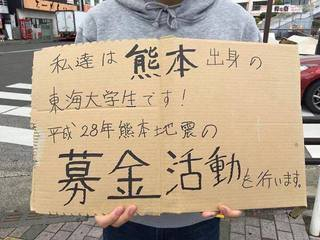 私達は熊本出身の
東海大学生です!
平成28年熊本地震の
募金活動を行います。